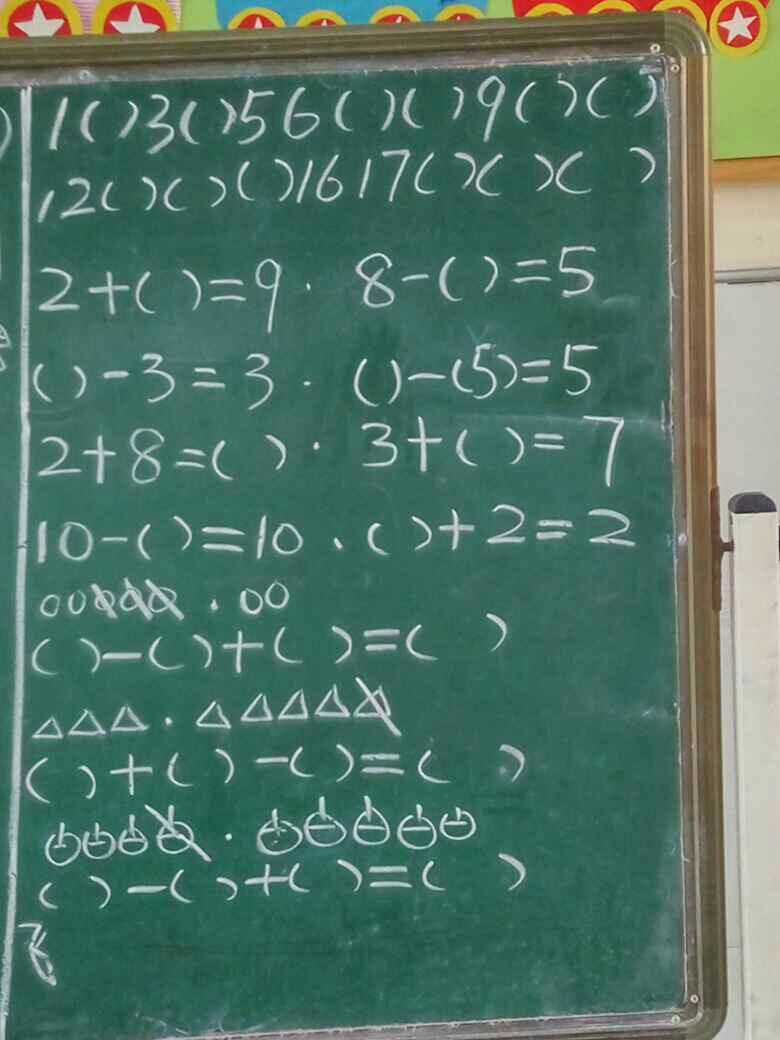 1( )3( )56( )( )9( )( )
12( )( )( )1617( )( )( )
2+( )=9. 8-( )=5
( )-3=3. ( )-(5)=5
2+8=( ). 3+( )=7
10-( )=10. ( )+2=2
( )-( )+( )=( )
( )+( )-( )=( )
( )-( )+( )=( )